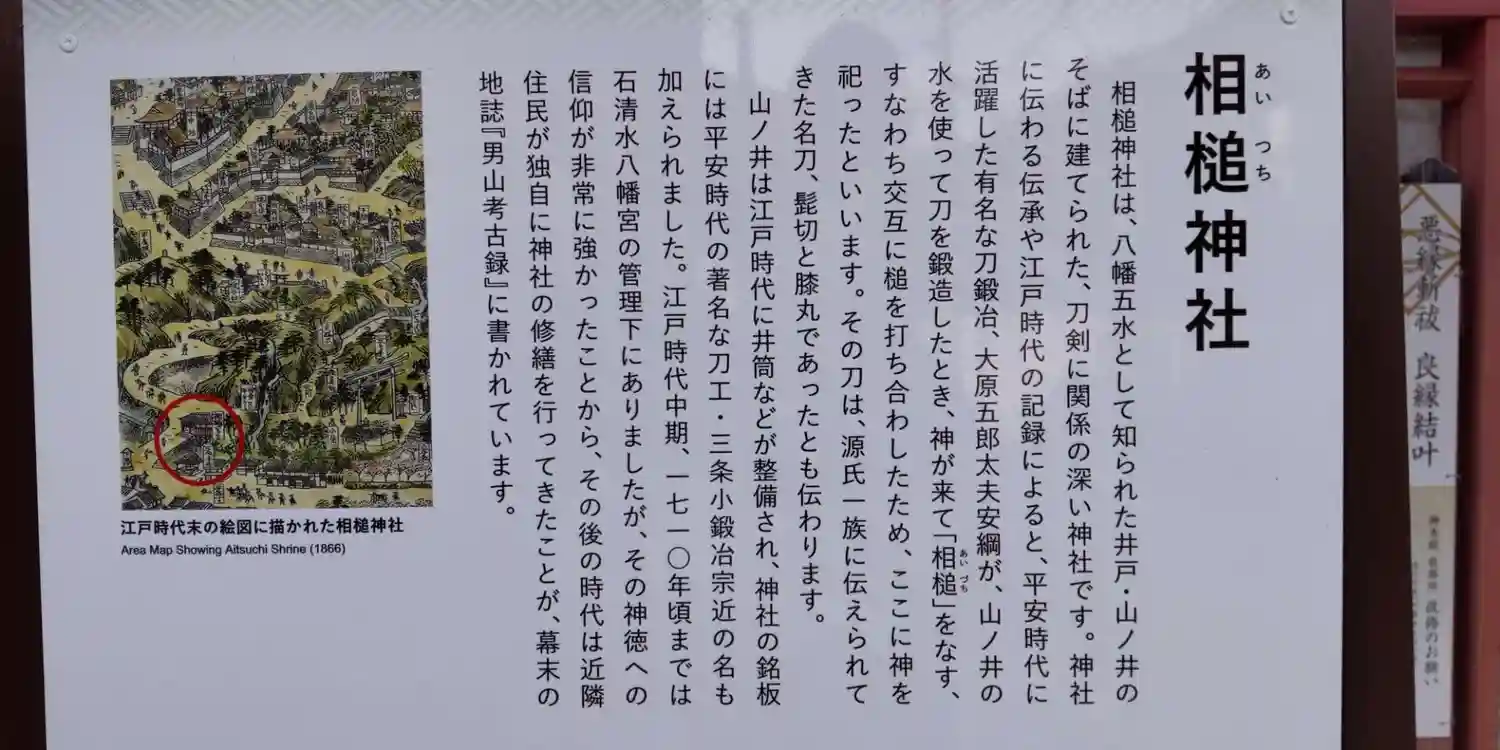 相槌神社
あい つち
相槌神社は、八幡五水として知られた井戸・山ノ井の
そばに建てられた、刀剣に関係の深い神社です。神社
に伝わる伝承や江戸時代の記録によると、平安時代に
活躍した有名な刀鍛冶、大原五郎太夫安綱が、山ノ井の
水を使って刀を鍛造したとき、神が来て「相槌」をなす、
あい づち
すなわち交互に槌を打ち合わしたため、ここに神を
祀ったといいます。その刀は、源氏一族に伝えられて
きた名刀、髭切と膝丸であったとも伝わります。
山ノ井は江戸時代に井筒などが整備され、神社の銘板
には平安時代の著名な刀工・三条小鍛冶宗近の名も
加えられました。江戸時代中期、一七一〇年頃までは
石清水八幡宮の管理下にありましたが、その神徳への
信仰が非常に強かったことから、その後の時代は近隣
住民が独自に神社の修繕を行ってきたことが、幕末の
地誌『男山考古録』に書かれています。
江戸時代末の絵図に描かれた相槌神社
Area Map Showing Aitsuchi Shrine (1866)
悪縁斬祓 良縁結叶